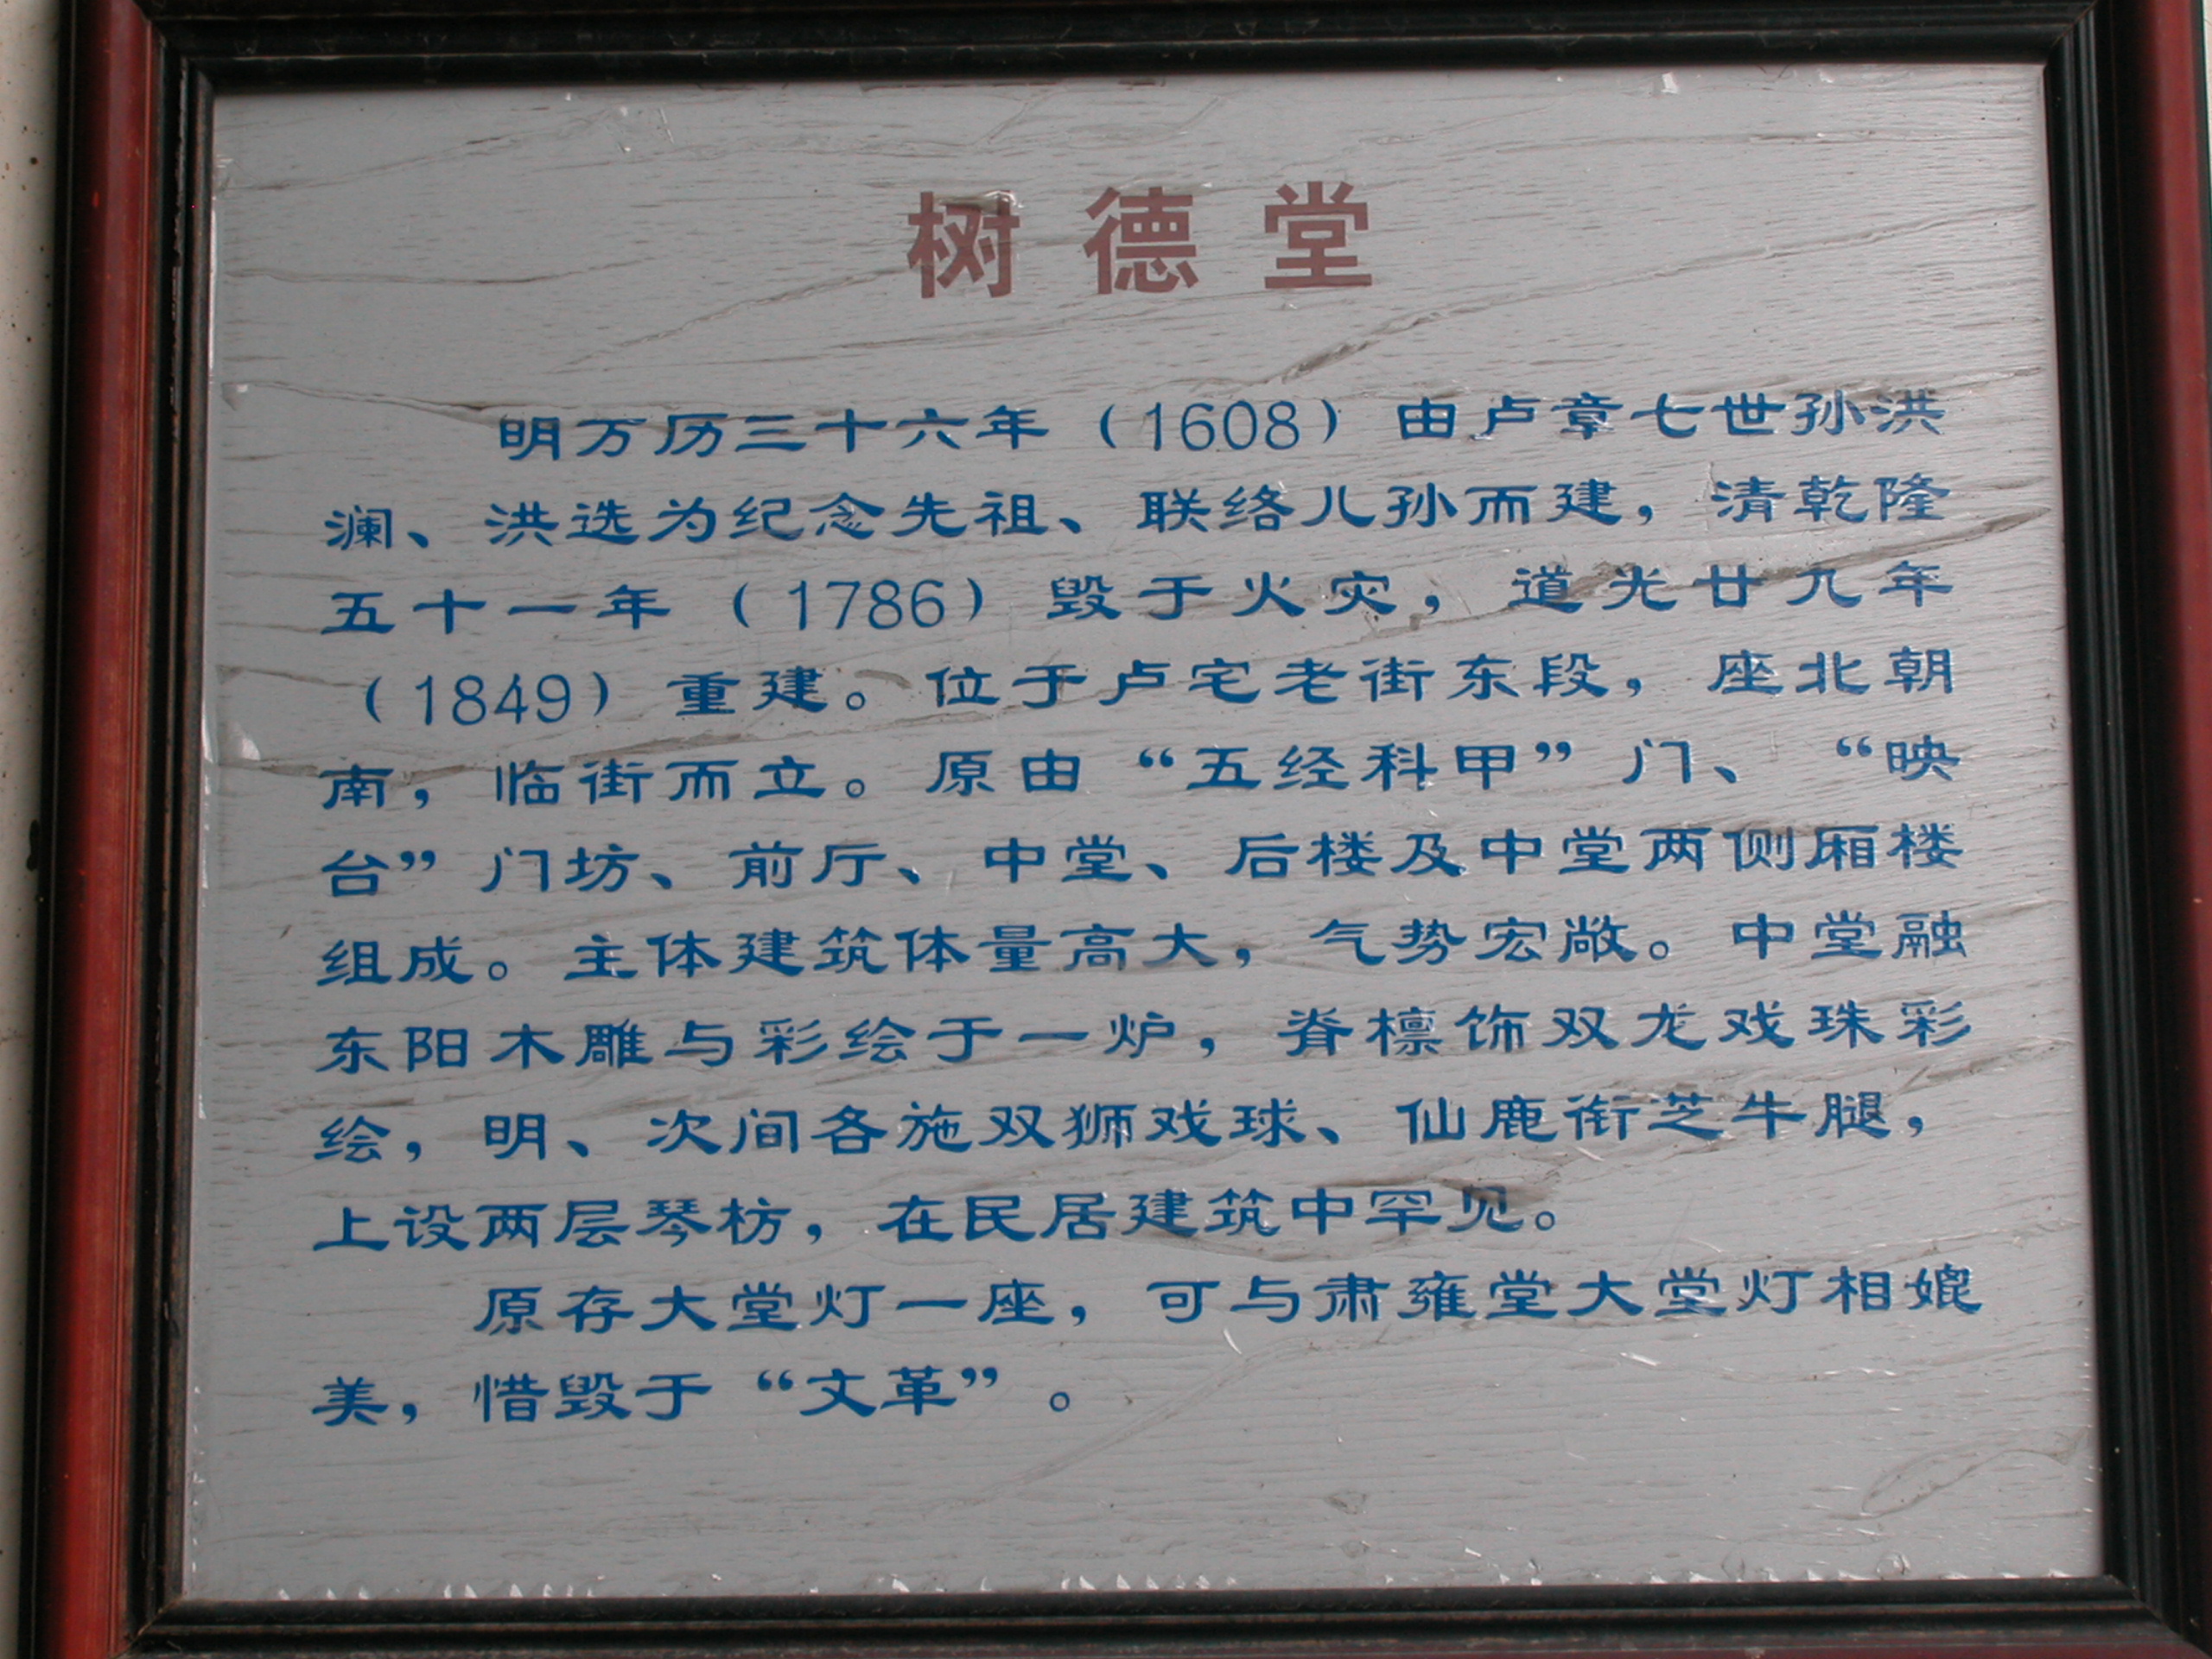 树德堂
明万历三十六年（1608）由卢章七世孙洪
澜、洪选为纪念先祖、联络儿孙而建，清乾隆
五十一年（1786）毁于火灾，道光廿九年
（1849）重建。位于卢宅老街东段，座北朝
南，临街而立。原由“五经科甲”门、“映
台”门坊、前厅、中堂、后楼及中堂两侧厢楼
组成。主体建筑体量高大，气势宏敞。中堂融
东阳木雕与彩绘于一炉，脊檩饰双龙戏珠彩
绘，明、次间各施双狮戏球、仙鹿衔芝牛腿，
上设两层琴枋，在民居建筑中罕见。
原存大堂灯一座，可与肃雍堂大堂灯相媲
美，惜毁于“文革”。